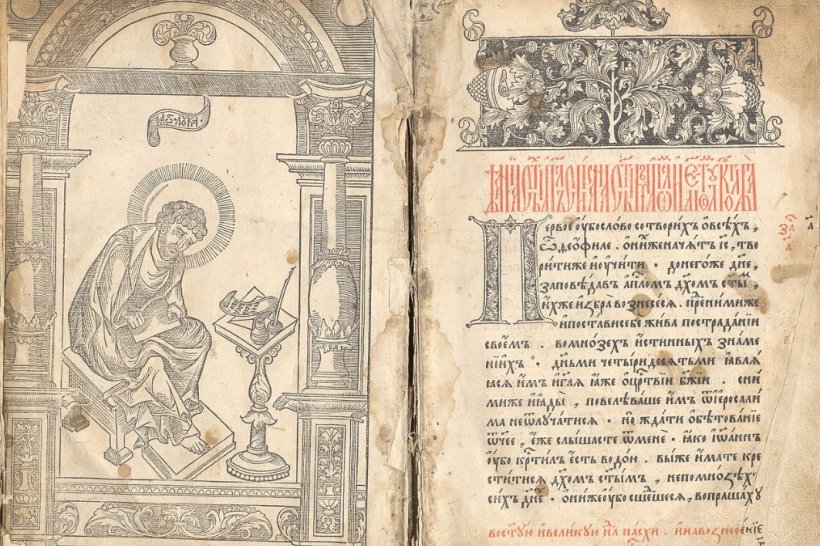 лꙋка
Первое ᲂубо слово сотворихъ ѡ всѣхъ,
ѽ ѳеѡфиле. ѡ нихже начатъ і҃с, тво
рити же и ᲂучити. до негоже дн҃е,
заповѣдавъ ап҃лом дх҃ом ст҃ы,
ихже избра вознесеся. пред ними же
и постави себе жива по страданїи
своемъ. во мнозех истинных знаме
нїих. дньми четыридесѧтьми ꙗвлѧ
ꙗсѧ имъ. и гл҃ѧ ꙗже о ц҃рствїи бж҃їи. сни
ми же ꙗды, повелѣваше имъ ѿ іерⷭ҇али
ма не ѿлꙋчатисѧ. но ждати обѣтованїе
ѿчее, еже слышасте ѿ мене. ꙗко іѡаннъ
ᲂубо крⷭ҇тилъ есть водою. вы же имате кре
ститисѧ дх҃омъ ст҃ымъ, не по мнозѣх
сихъ дне. они же ᲂубо сшешесѧ, вопрашахꙋ
во ст҃ꙋю и великꙋю нл҃ пасхи. и на вознесенїе
за҃
а